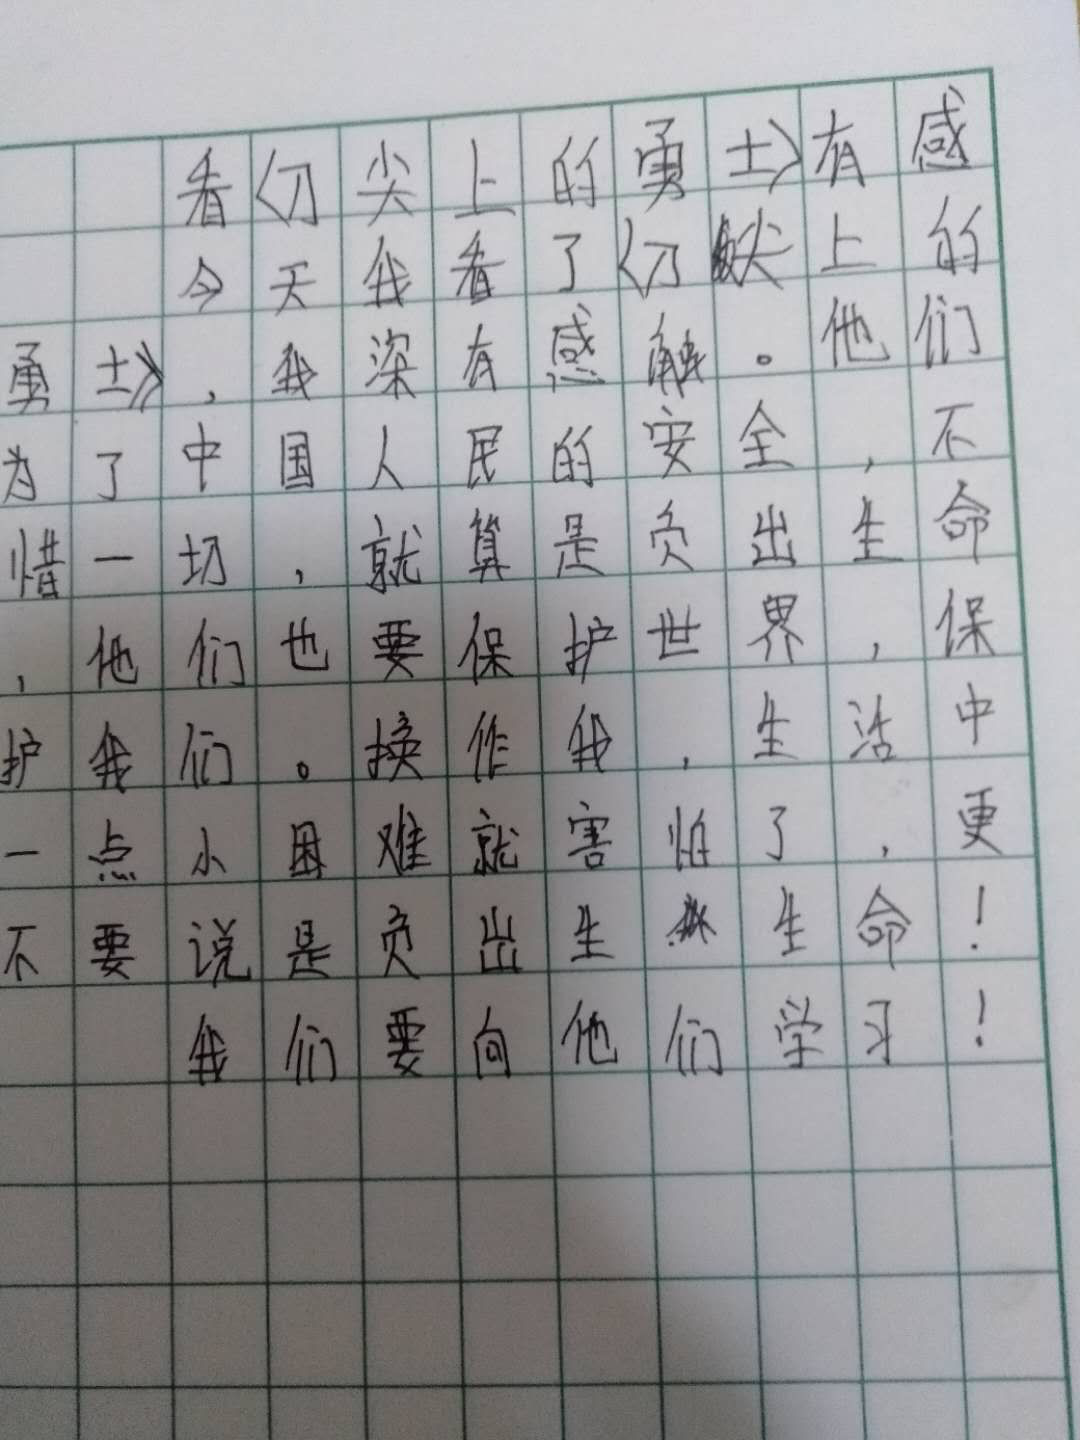 看〈刀尖上的勇士〉有感
今天我看了〈刀尖上的
勇士》，我深有感触。他们
为了中国人民的安全，不
惜一切，就算是负出生命
，他们也要保护世界，保
护我们。换作我，生活中
一点小困难就害怕了，更
不要说是负出生生命！
我们要向他们学习！